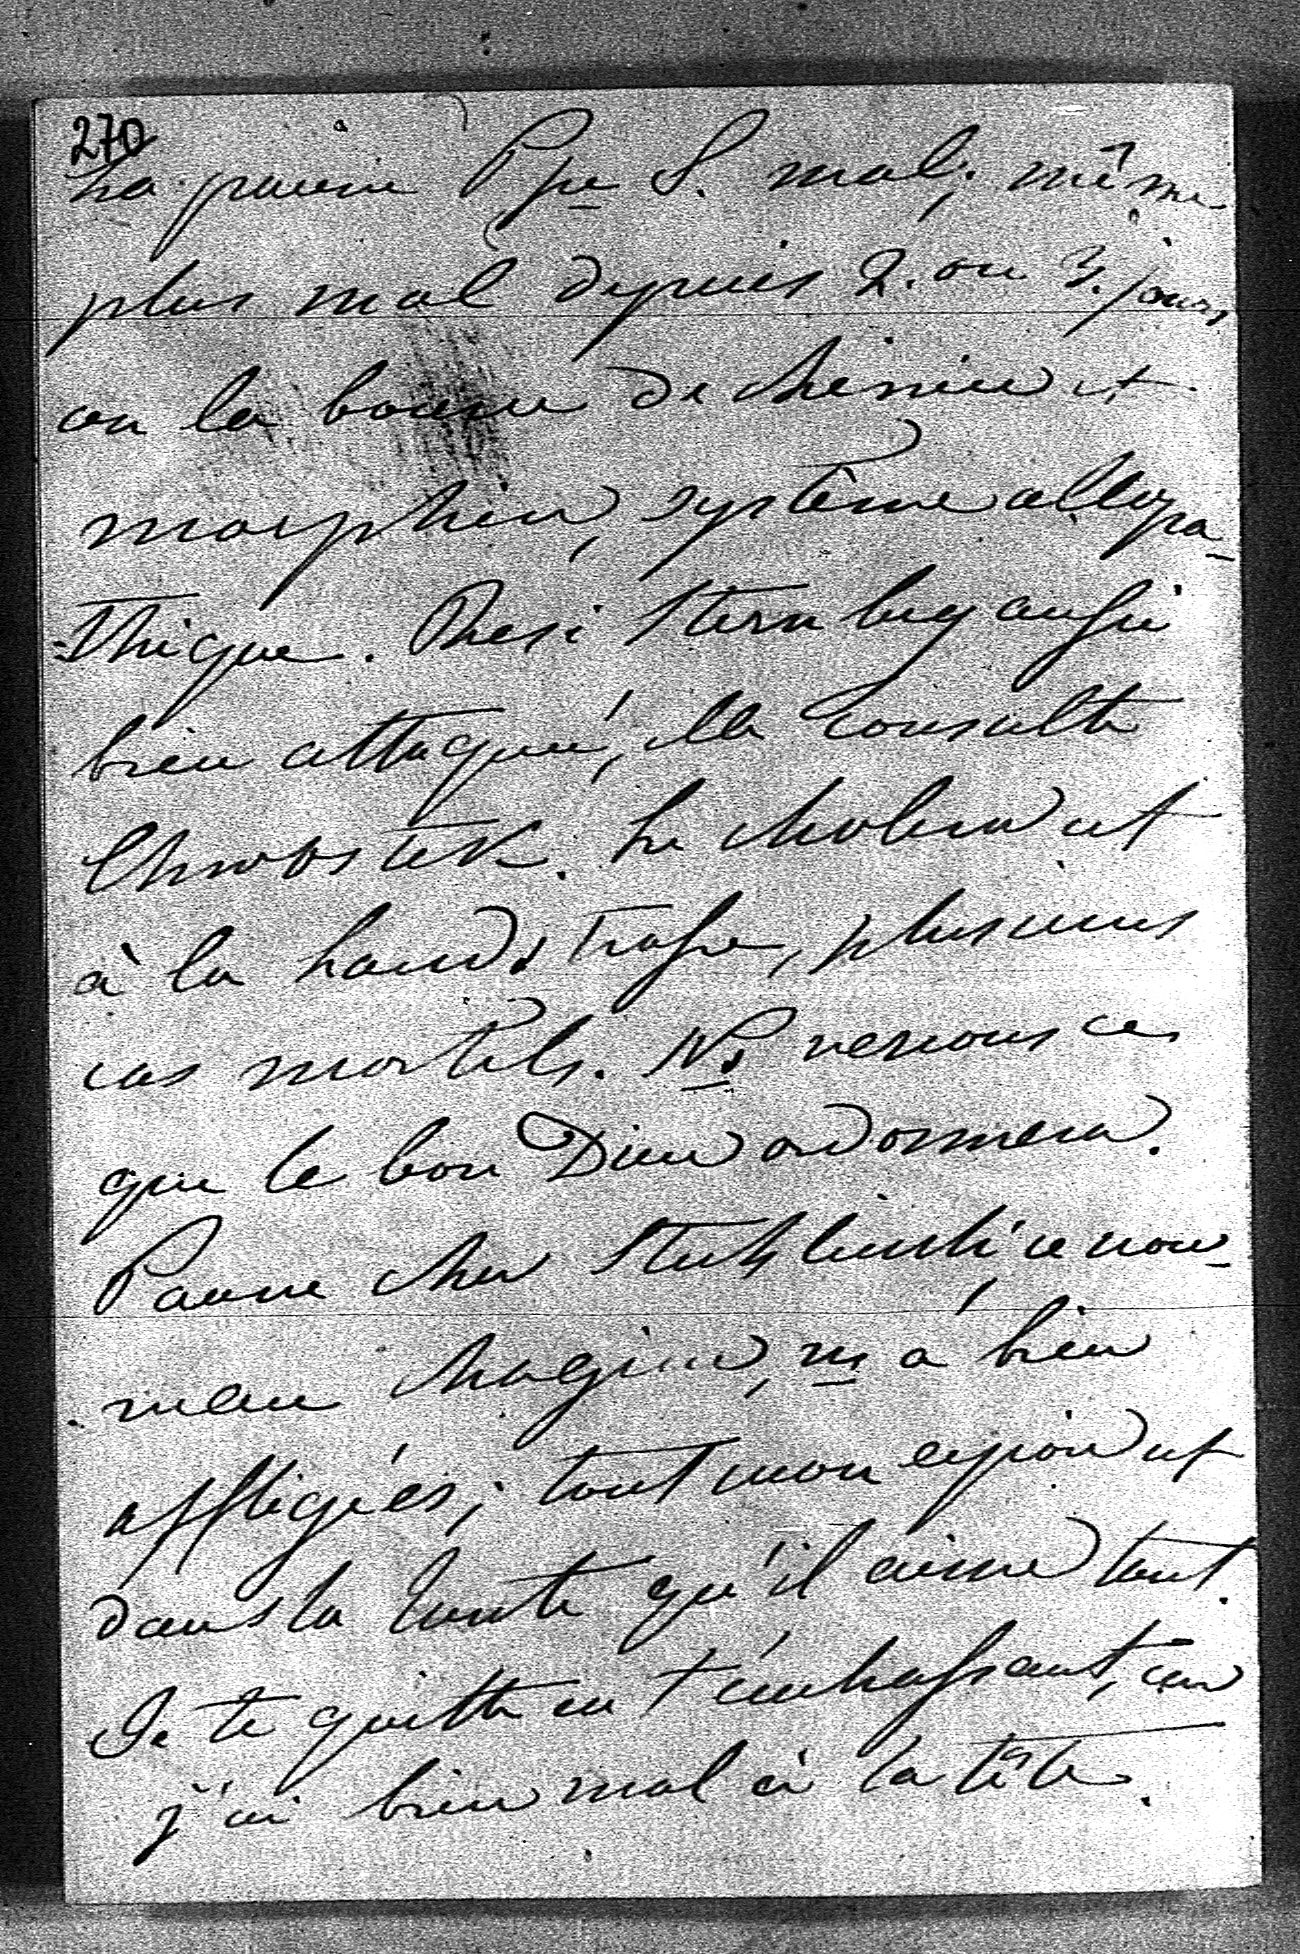 270
La pauvre Pße S. mal; même
plus mal depuis 2. ou 3. jours,
on la bourre de chinine et
morphine, système allopa-
=thique. Resi Sternberg aussi
bien attaquée, elle consulte
Chrobstek. Le cholera est
à la Landstrasse, plusieurs
cas mortels. Ns verrons ce
que le bon Dieu ordonnera.
Pauvre cher Stutzlienti, ce nou-
-veau chagrin, ns a bien
affligées; tout mon espoir est
dans la Tante qu'il aime tant.
Je te quitte en t'embrassant, car
j'ai bien mal à la tête.